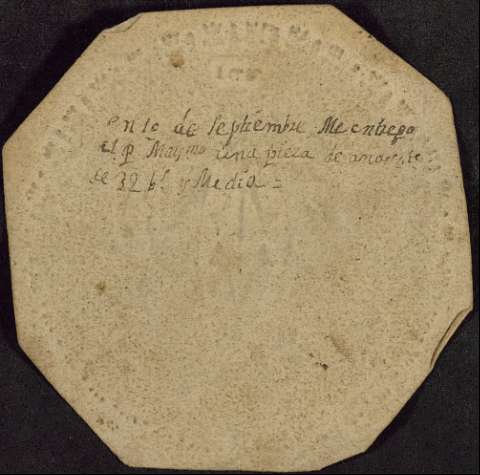 en 10 de Septiembre Me entrego
el P Maymo una pieza de
de 32 bs y Media =